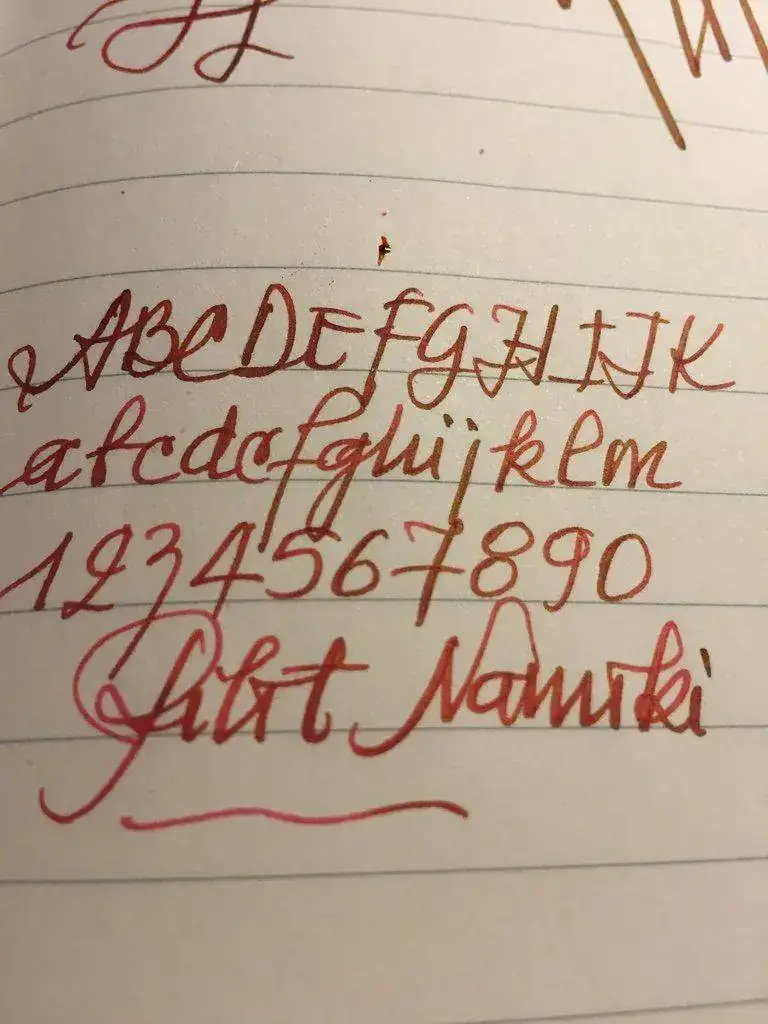 ABCDEFGHIJK
abcdefghijklm
1234567890
Pilot Namiki